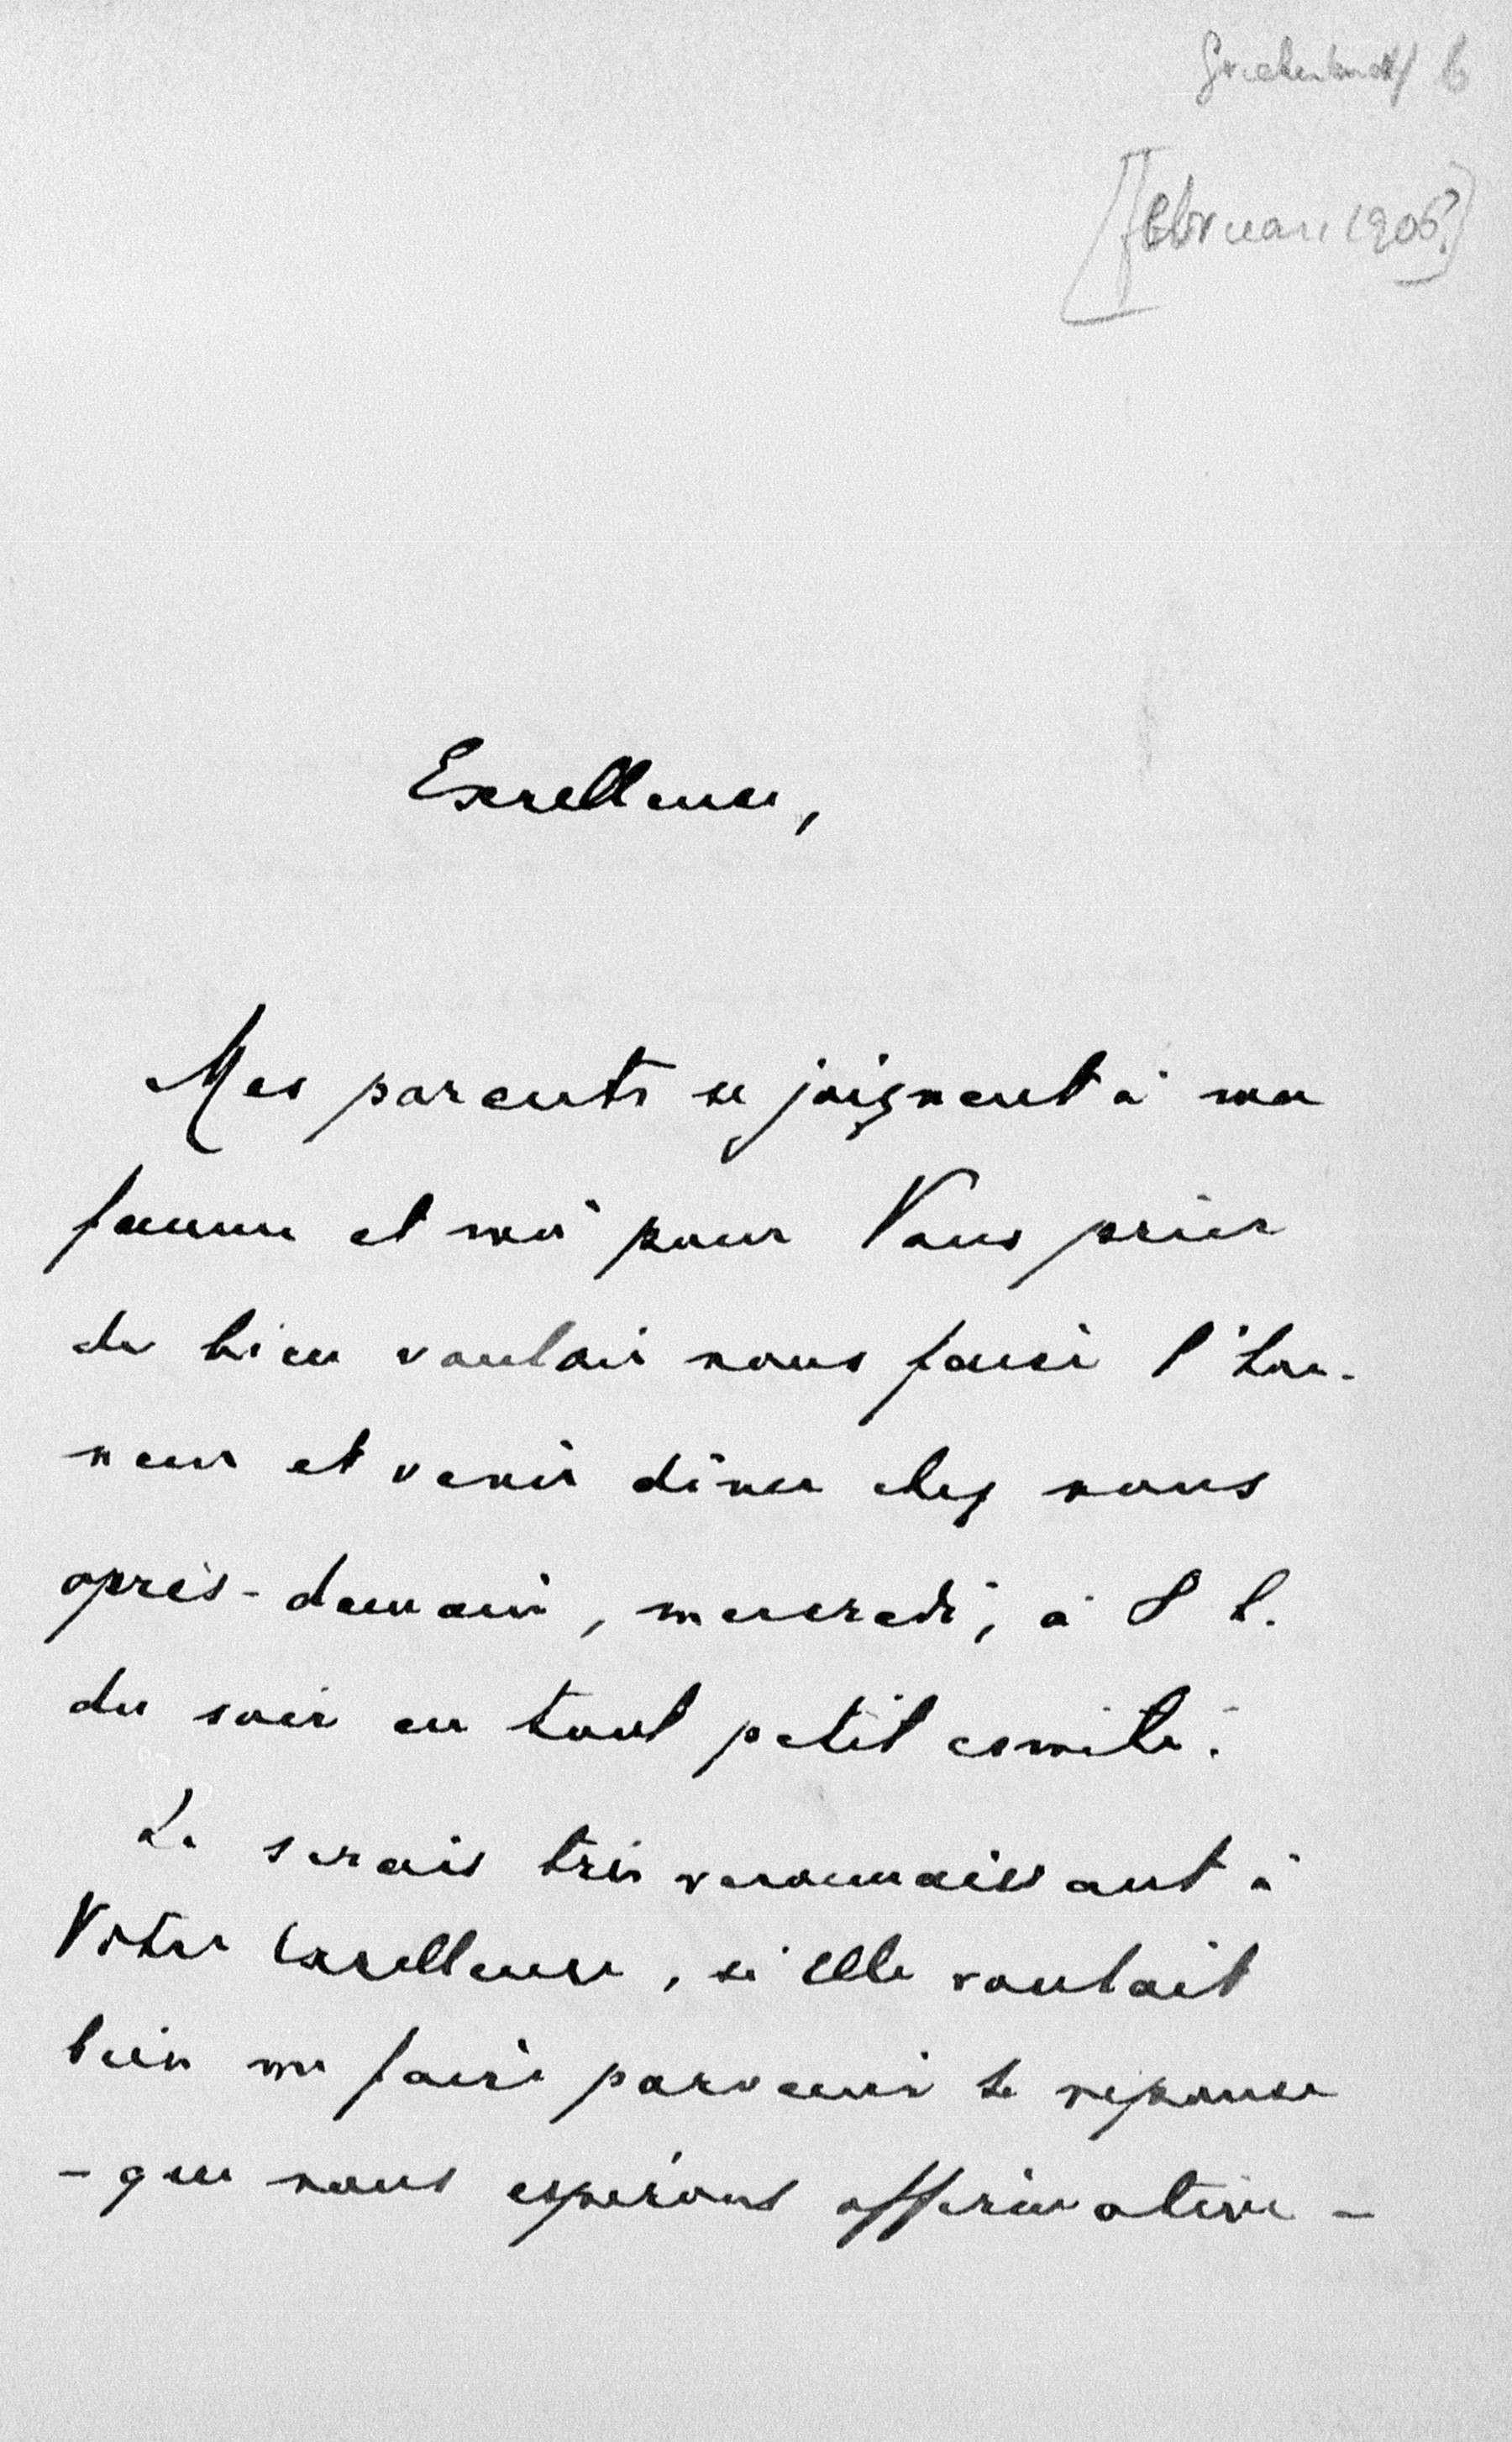 [Februari 1906?]
Excellence,
Mes parents se joignent à ma
femme et moi pour Vous prier
de bien vouloir nous faire l'hon-
neur et venir dîner chez nous
après-demain, mercredi, à 8 h.
du soir en tout petit comité.
Je serais très reconnaissant à
Votre Excellence, si Elle voulait
bien me faire parvenir sa réponse
- que nous espérons affirmative -